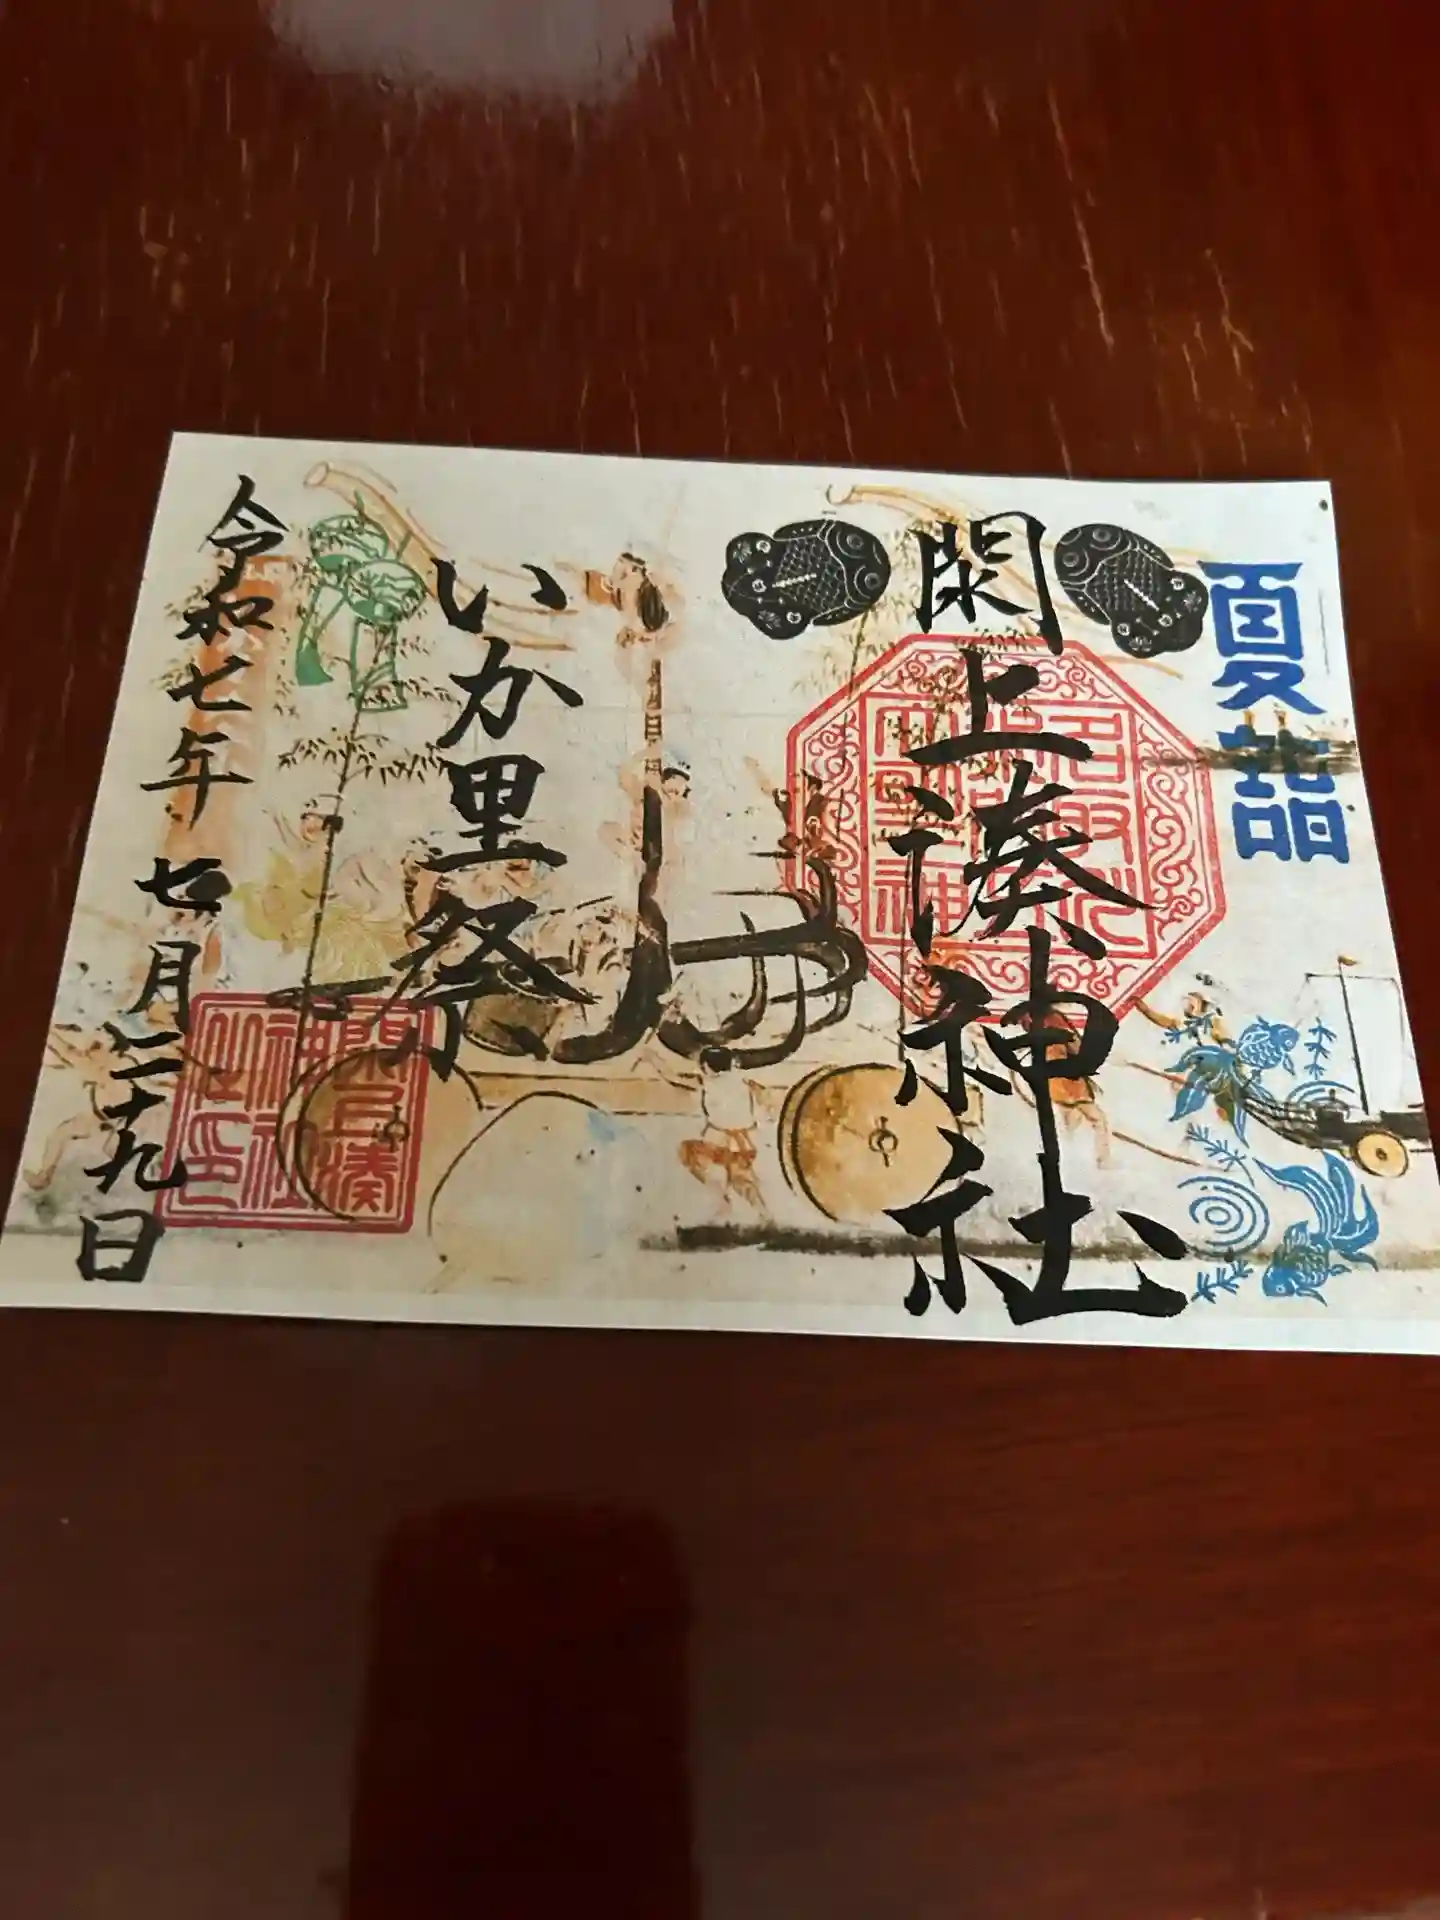 夏詣
閖上湊神社
いか里祭
令和七年七月二十九日
閖上湊
神社
之印